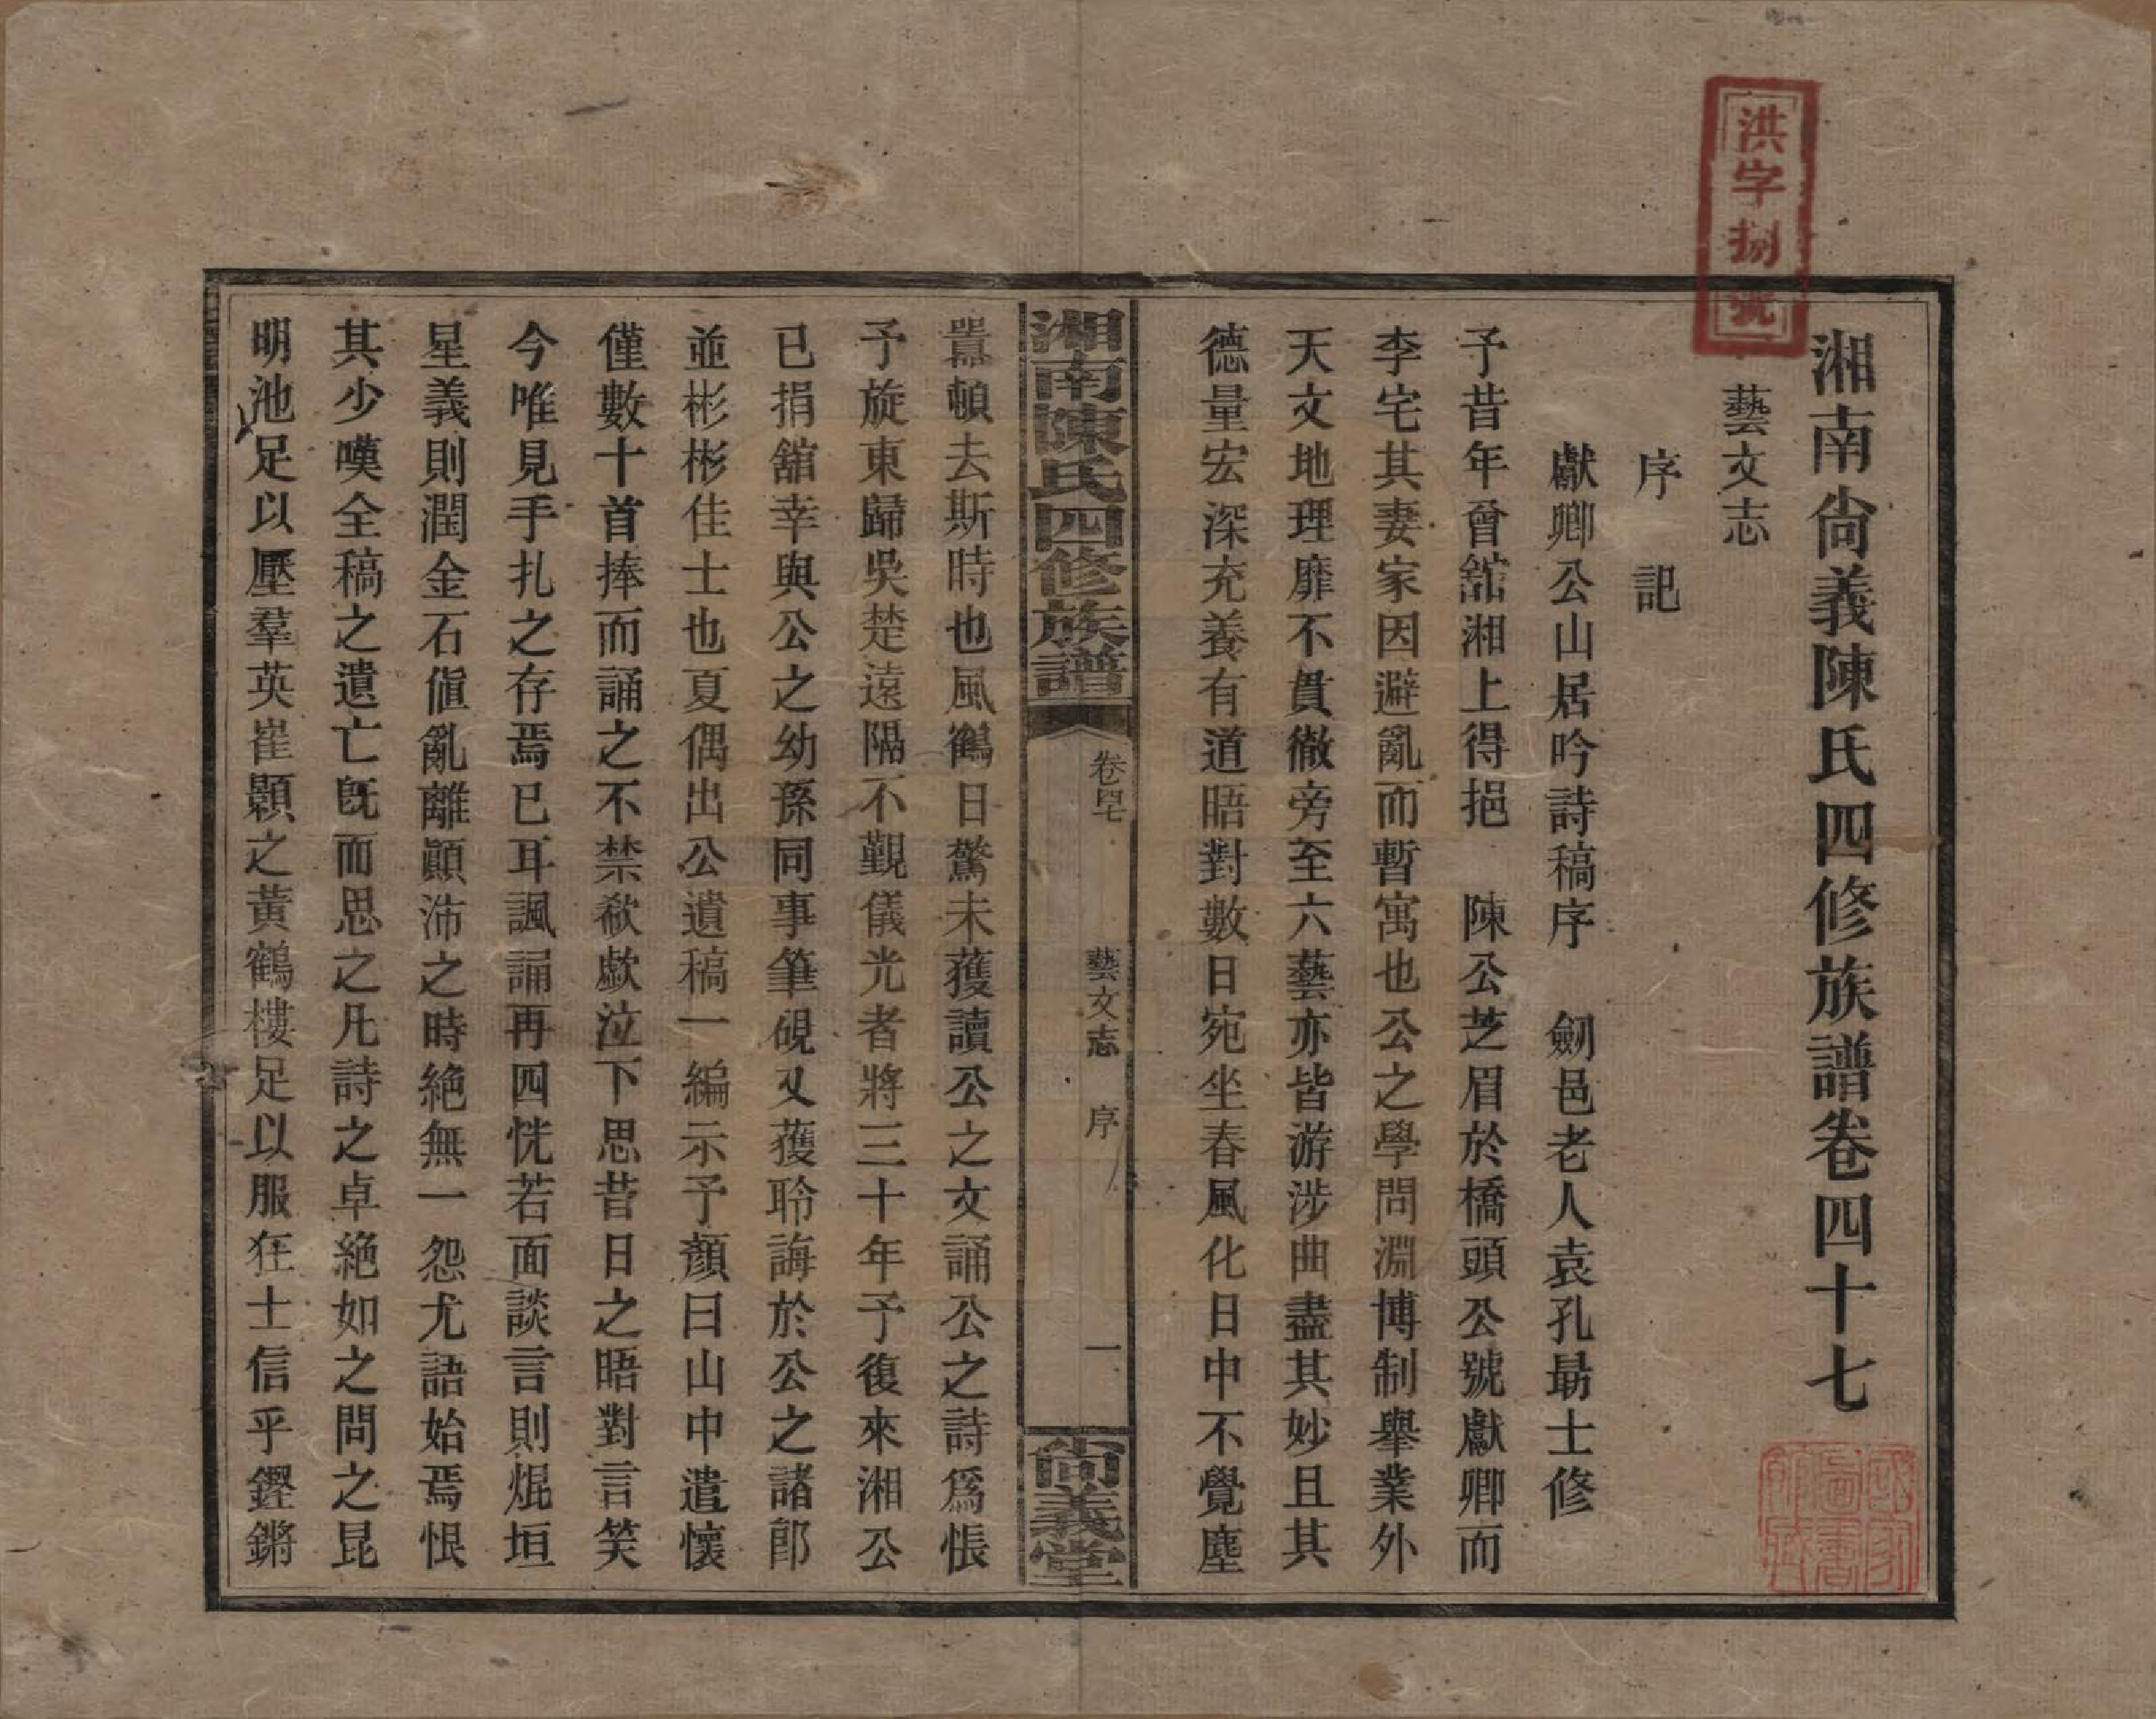 洪字捌號
湘南尙義陳氏四修族譜卷四十七
藝文志
序記
獻卿公山居吟詩稿序　劒邑老人袁孔勗士修
予昔年曾舘湘上得挹　陳公芝眉於橋頭公號獻卿而
李宅其妻家因避亂而暫寓也公之學問淵博制舉業外
天文地理靡不貫徹旁至六藝亦皆游涉曲盡其妙且其
德量宏深充養有道晤對數日宛坐春風化日中不覺塵
湘南陳氏四修族譜
卷四七
藝文志　序
一
尙義堂
囂頓去斯時也風鶴日驚未獲讀公之文誦公之詩爲悵
予旋東歸吳楚遠隔不覿儀光者將三十年予復來湘公
已捐舘幸與公之幼孫同事筆硯又獲聆誨於公之諸郎
並彬彬佳士也夏偶出公遺稿一編示予顏曰山中遣懷
僅數十首捧而誦之不禁欷歔泣下思昔日之晤對言笑
今唯見手扎之存焉已耳諷誦再四恍若面談言則焜垣
星義則潤金石値亂離顚沛之時絶無一怨尤語始焉恨
其少嘆全稿之遺亡旣而思之凡詩之卓絶如之問之昆
明池足以壓羣英崔顥之黃鶴樓足以服狂士信乎鏗鏘
國家圖書館藏